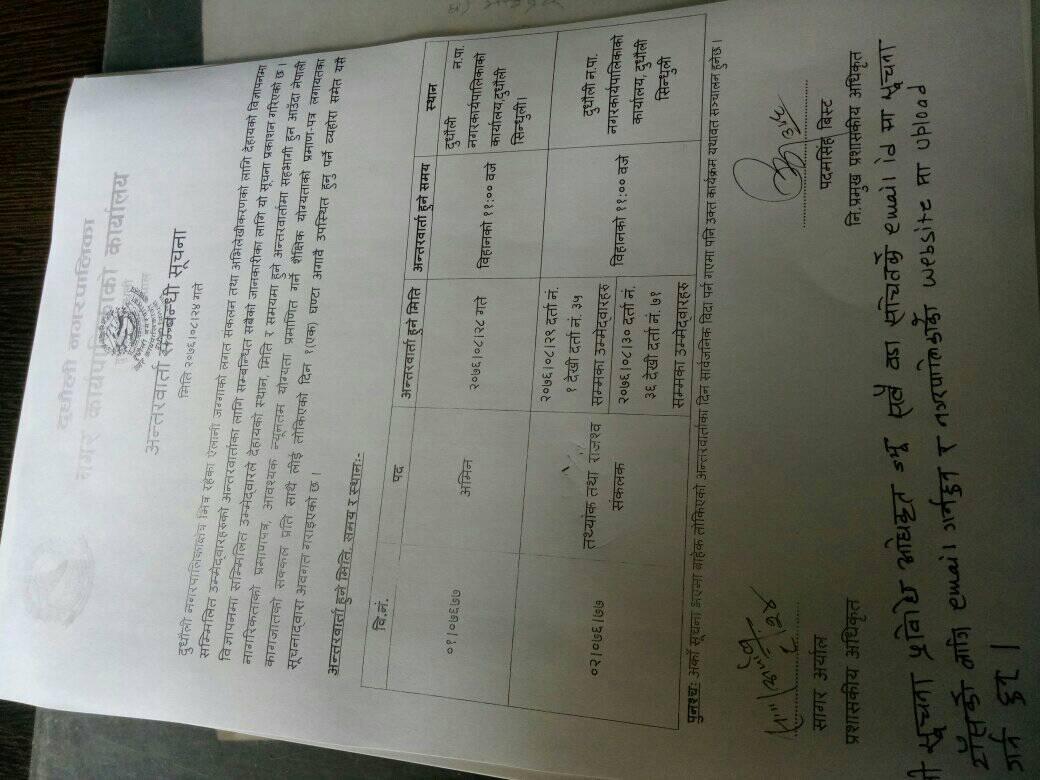 दुधौली नगरपालिका
नगर कार्यपालिकाको कार्यालय
अन्तरवार्ता सम्बन्धी सूचना
मिति २०७६।०८।२४ गते
दुधौली नगरपालिकाक्षेत्र भित्र रहेका ऐलानी जग्गाको लगत संकलन तथा अभिलेखीकरणको लागि देहायको विज्ञापनमा
सम्मिलित उम्मेदवारहरुको अन्तरवार्ताका लागि सम्बन्धित सबैको जानकारीका लागि यो सूचना प्रकाशन गरिएको छ।
विज्ञापनमा सम्मिलित उम्मेदवारले देहायको स्थान, मिति र समयमा हुने अन्तरवार्तामा सहभागी हुन आउँदा नेपाली
नागरिकताको प्रमाणपत्र, आवश्यक न्यूनतम योग्यता प्रमाणित गर्ने शैक्षिक योग्यताको प्रमाण-पत्र लगायतका
कागजातको सक्कल प्रति साथै लीई तोकिएको दिन १(एक) घण्टा अगावै उपस्थित हुनु पर्ने व्यहोरा समेत यसै
सूचनाद्वारा अवगत गराइएको छ ।
अन्तरवार्ता हुने मिति, समय र स्थानः-
वि.नं. पद अन्तरवार्ता हुने मिति अन्तरवार्ता हुने समय स्थान
०१।०७६।७७ अमिन २०७६।०८।२८ गते विहानको ११:०० वजे दुधौली न.पा.
नगरकार्यपालिकाको
कार्यालय,दुधौली
सिन्धुली।
०२।०७६।७७ तथ्यांक तथा राजश्व
संकलक
२०७६।०८।२९ दर्ता नं.
१ देखी दर्ता नं. ३५
सम्मका उम्मेदवारहरु
२०७६।०८।३० दर्ता नं.
३६ देखी दर्ता नं. ७१
सम्मका उम्मेदवारहरु
विहानको ११:०० वजे
दुधौली न.पा.
नगरकार्यपालिकाको
कार्यालय, दुधौली
सिन्धुली
पुनश्चः अर्को सूचना भएमा बाहेक तोकिएको अन्तरवार्ताका दिन सार्वजनिक विदा पर्न गएमा पनि उक्त कार्यक्रम यथावत सञ्चालन हुनेछ।
सागर अर्याल
प्रशासकीय अधिकृत
पदमसिंह बिस्ट
नि.प्रमुख प्रशासकीय अधिकृत
सूचना प्रविधि अधिकृत ज्यू सबै वडा सचिवको email id मा सूचना
लागि email गर्नुहुन र नगरपालिकाको website मा upload
गर्न हुन ।